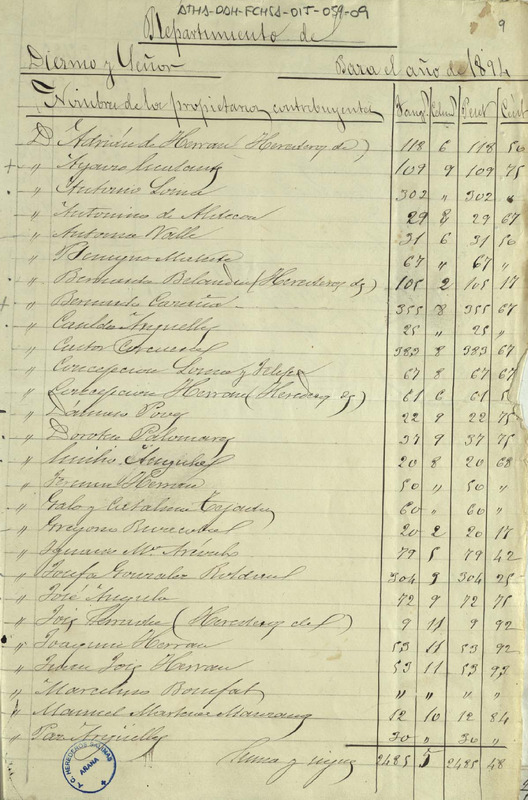 ATHA-DAH-FCHSA-DIT-059-09
9
Repartimiento de
Diezmo y Señor Para el año de 1894
Nombre de los propietarios contribuyentes Fang. Celm. Peset. Cent.
D Adrián de Herran (Herederos de) 118 6 118 50
+ " 109 9 109 75
" Antonio Loma 302 " 302 "
" Antonino de 29 8 29 67
" Antonia Valle 31 6 31 50
" Benigno 67 " 67 "
" Bernardo Belandia (Herederos de) 105 2 105 17
+ " Bernardo 355 8 355 67
" Casilda Angulo 25 " 25 "
" Castor 383 8 383 67
" Concepcion Loma y 67 8 67 67
" Concepcion Herran (Herederos de) 61 6 61 5
" Damaso Povez 22 9 22 75
" Dorotea Palomares 37 9 37 75
" Emilio Angulo 20 8 20 68
" Fermin Herran 50 " 50 "
" Galo y Catalina Tejada 60 " 60 "
" Gregorio 20 2 20 17
" Ignacio Mª 79 5 79 42
" Josefa Gonzalez 304 3 304 25
" José Angulo 72 9 72 75
" José (Herederos de) 9 11 9 92
" Joaquin Herran 53 11 53 92
" Juan José Herran 53 11 53 93
" Marcelino Bonifaz " " " "
" Manuel Martinez 12 10 12 84
" Paz Angulo 30 " 30 "
Suma y sigue 2485 5 2485 48
HEREDEROS SALINAS
AÑANA